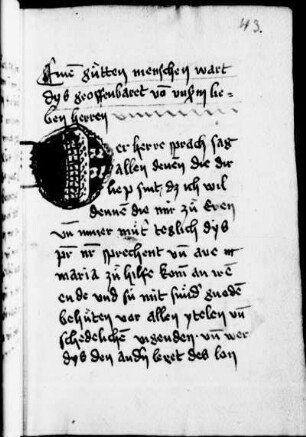 43.
Eime gůtten menschen wart
dys geoffenbaret vō vnßm lie-
ben herren
Der herre sprach sag
allen denen die dir
liep sint dz ich wil
dennen die mir zů eren
vn̄ mir můt teglich dys
pr̄ nr̄ sprechent vn̄ aue
maria zů hilfe kom̄ an
ende vnd sü mit gnoden
behůten vor allen ytelen vn̄
schedelichen vigenden vn̄ wer
dys den andn̄ leret des lon